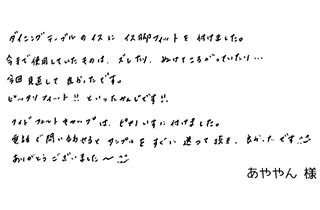 ダイニングテーブルのイスに イス脚フィットを 付けました。
今まで使用していたものは、ズレたり、ぬけてころがっていたり…
今回 見直して 良かったです。
ピッタリフィット!! といったかんじです!!
ワイドフェルトキャップは、ピアノいすに付けました。
電話で問い合わせると サンプルを すぐに 送って頂き、良かったです
ありがとうございました〜
あややん 様